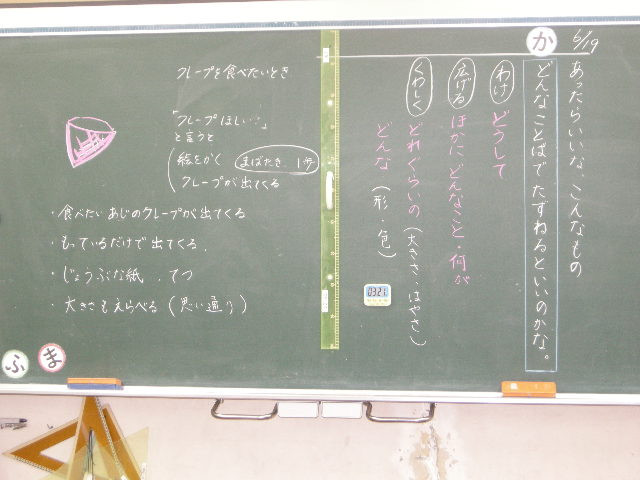 6/19
あったらいいな、こんなもの
か
どんなことばでたずねるといいのかな。
わけ どうして
広げる ほかに どんなこと・何が
くわしく どれぐらいの（大きさ、はやさ）
どんな（形・色）
クレープを食べたいとき
「クレープほしい」
と言うと
絵をかく まばたき 1分
クレープが出てくる
・食べたいあじのクレープが出てくる
・もっているだけで出てくる、
・じょうぶな紙、てつ
・大きさもえらべる（思い通り）
0321
ふ
ま